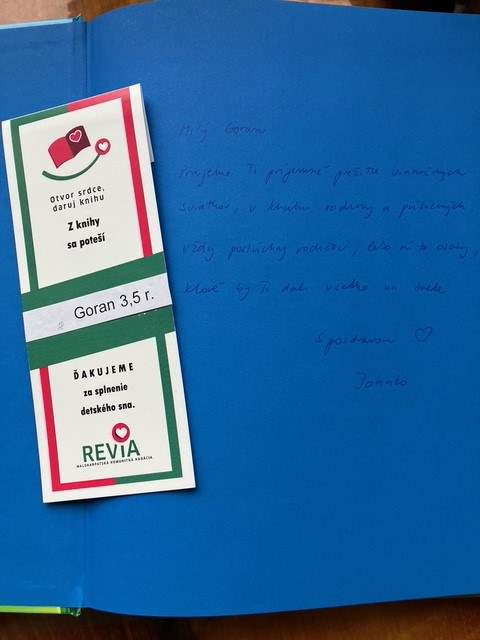 Otvor srdce,
daruj knihu
Z knihy
sa poteší
Goran 3,5 r.
ĎAKUJEME
za splnenie
detského sna.
REViA
MALOKARPATSKÁ KOMUNITNÁ NADÁCIA
Milý Goran
Prajeme Ti príjemné prežitie vianočných
sviatkov, v kruhu rodiny a
Vždy poslúchaj rodičov, sú to osoby,
ktoré by Ti dali všetko na svete
S pozdravom ♡